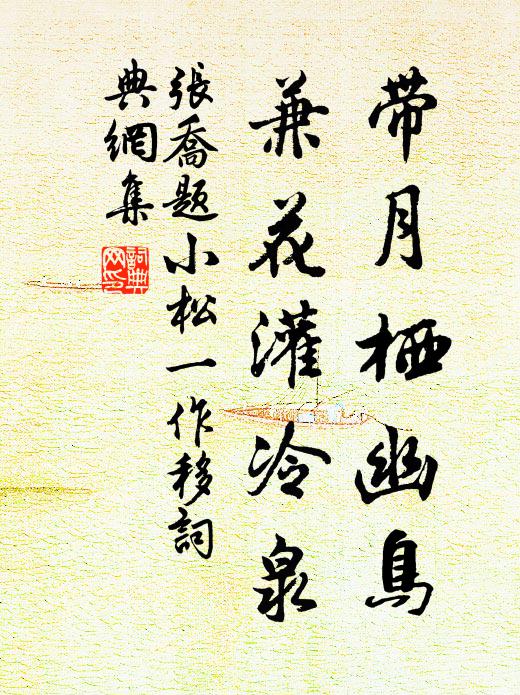 带月栖幽鳥
兼花灌冷泉
張喬題小松一作移詞
典網集
詞典
网印